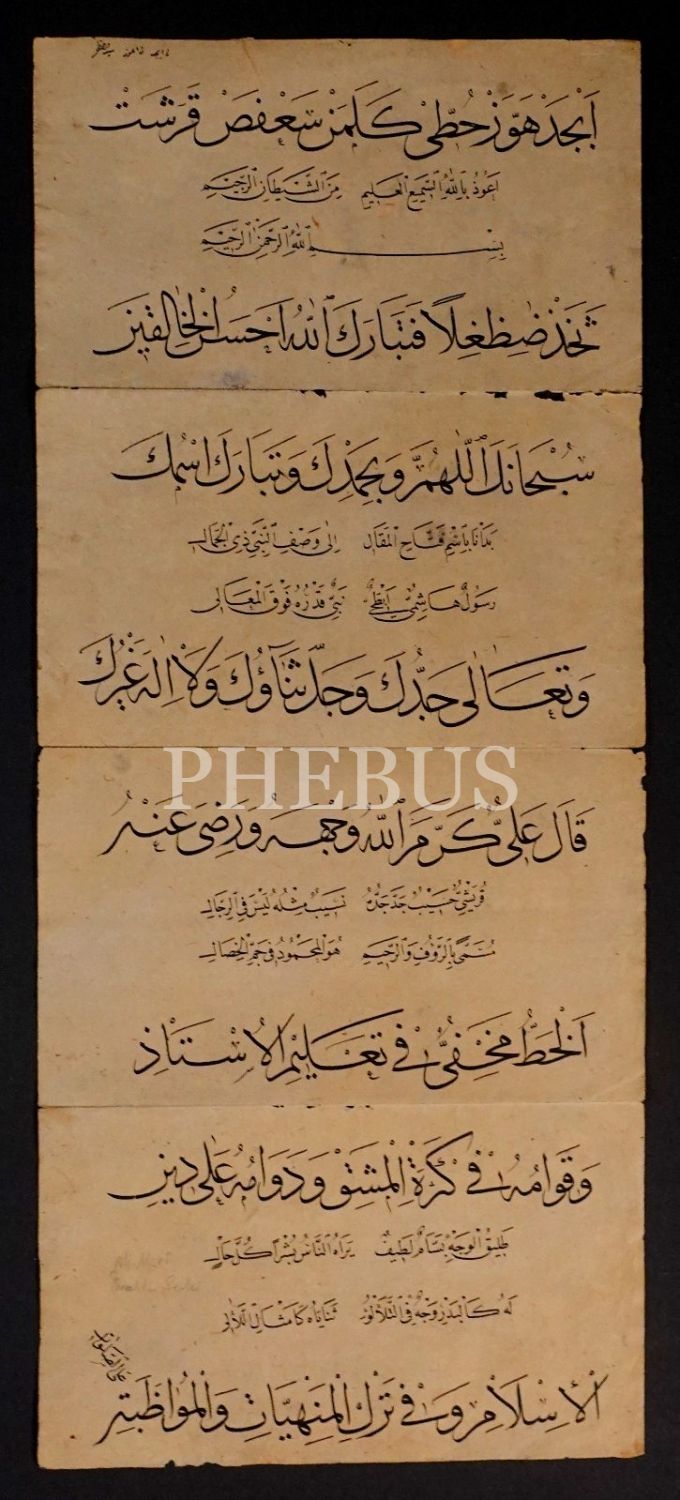 اَبْجَدْ هَوَّزْ حُطِّي كَلَمَنْ سَعْفَصْ قَرَشَتْ
اَعُوذُ بِاللّٰهِ السَّمِيعِ الْعَلِيمِ مِنَ الشَّيْطَانِ الرَّجِيمِ
بِسْمِ اللّٰهِ الرَّحْمٰنِ الرَّحِيمِ
ثَخَذْ ضَظِغْلًا فَتَبَارَكَ اللّٰهُ اَحْسَنُ الْخَالِقِينَ
سُبْحَانَكَ اللّٰهُمَّ وَبِحَمْدِكَ وَتَبَارَكَ اسْمُكَ
بَدَاْنَا بِاسْمِ فَتَّاحِ الْمَقَالِ اِلٰى وَصْفِ النَّبِيِّ ذِي الْجَمَالِ
رَسُولٌ هَاشِمِيٌّ اَبْطَحِيٌّ نَبِيٌّ قَدْرُهُ فَوْقَ الْمَعَالِي
وَتَعَالٰى جَدُّكَ وَجَلَّ ثَنَآؤُكَ وَلَا اِلٰهَ غَيْرُكَ
PHEBUS
قَالَ عَلِيٌّ كَرَّمَ اللّٰهُ وَجْهَهُ وَرَضِيَ عَنْهُ
قُرَيْشِيٌّ حَسِيبٌ جَدَّ جَدُّهُ نَسِيبٌ مِثْلُهُ لَيْسَ فِي الرِّجَالِ
مُسَمًّى بِالرَّؤُفِ وَالرَّحِيمِ هُوَ الْمَحْمُودُ فِي جَمِّ الْخِصَالِ
اَلْخَطُّ مَخْفِيٌّ فِي تَعْلِيمِ الْاُسْتَاذِ
وَقَوَامُهُ فِي كَثْرَةِ الْمَشْقِ وَدَوَامُهُ عَلٰى دِينِ
طَلِيقُ الْوَجْهِ بَسَّامٌ لَطِيفٌ يَرَاهُ النَّاسُ بِشْرًا كُلَّ حَالِ
لَهُ كَالْبَدْرِ وَجْهٌ فِي التَّلَأْلُؤِ ثَنَايَاهُ كَاَمْثَالِ اللَّاٰلِي
الْاِسْلَامِ وَفِي تَرْكِ الْمَنْهِيَّاتِ وَالْمُوَاظَبَةِ